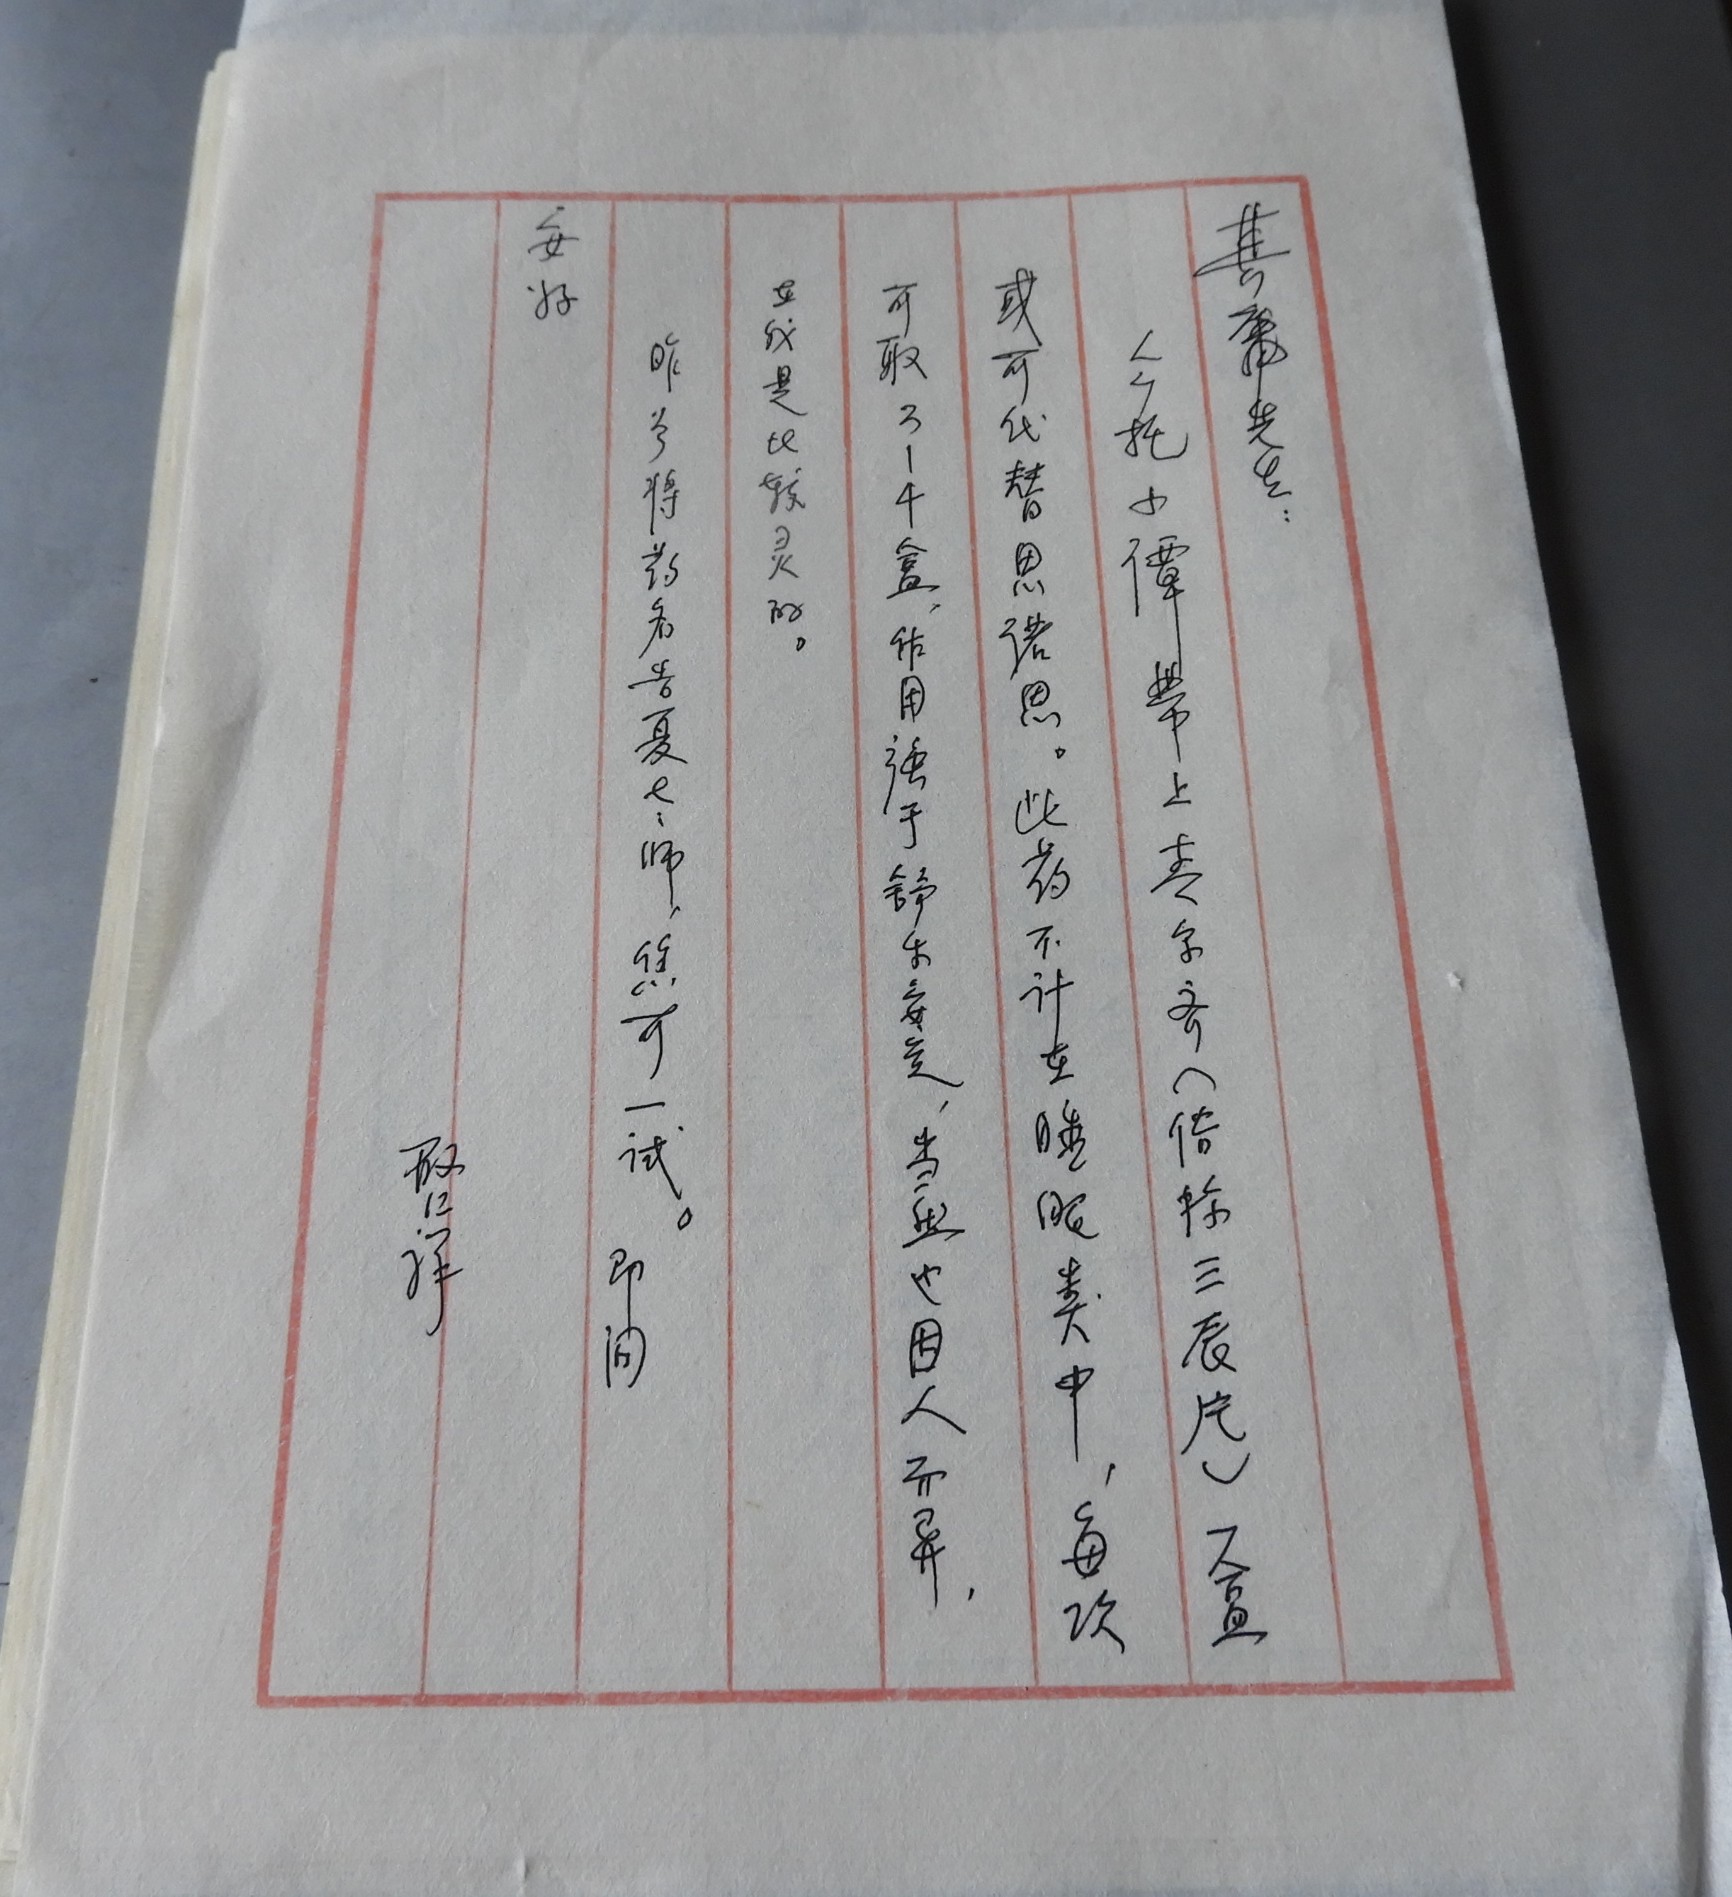 其庸先生：
今托小谭带上 片）一盒
或可代替思诺思。此药不计在睡眠类中，每次
可取 盒，作用强于舒乐安定，当然也因人而异，
在我是比较灵的。
昨 将药名告夏老师，您可一试。即问
安好